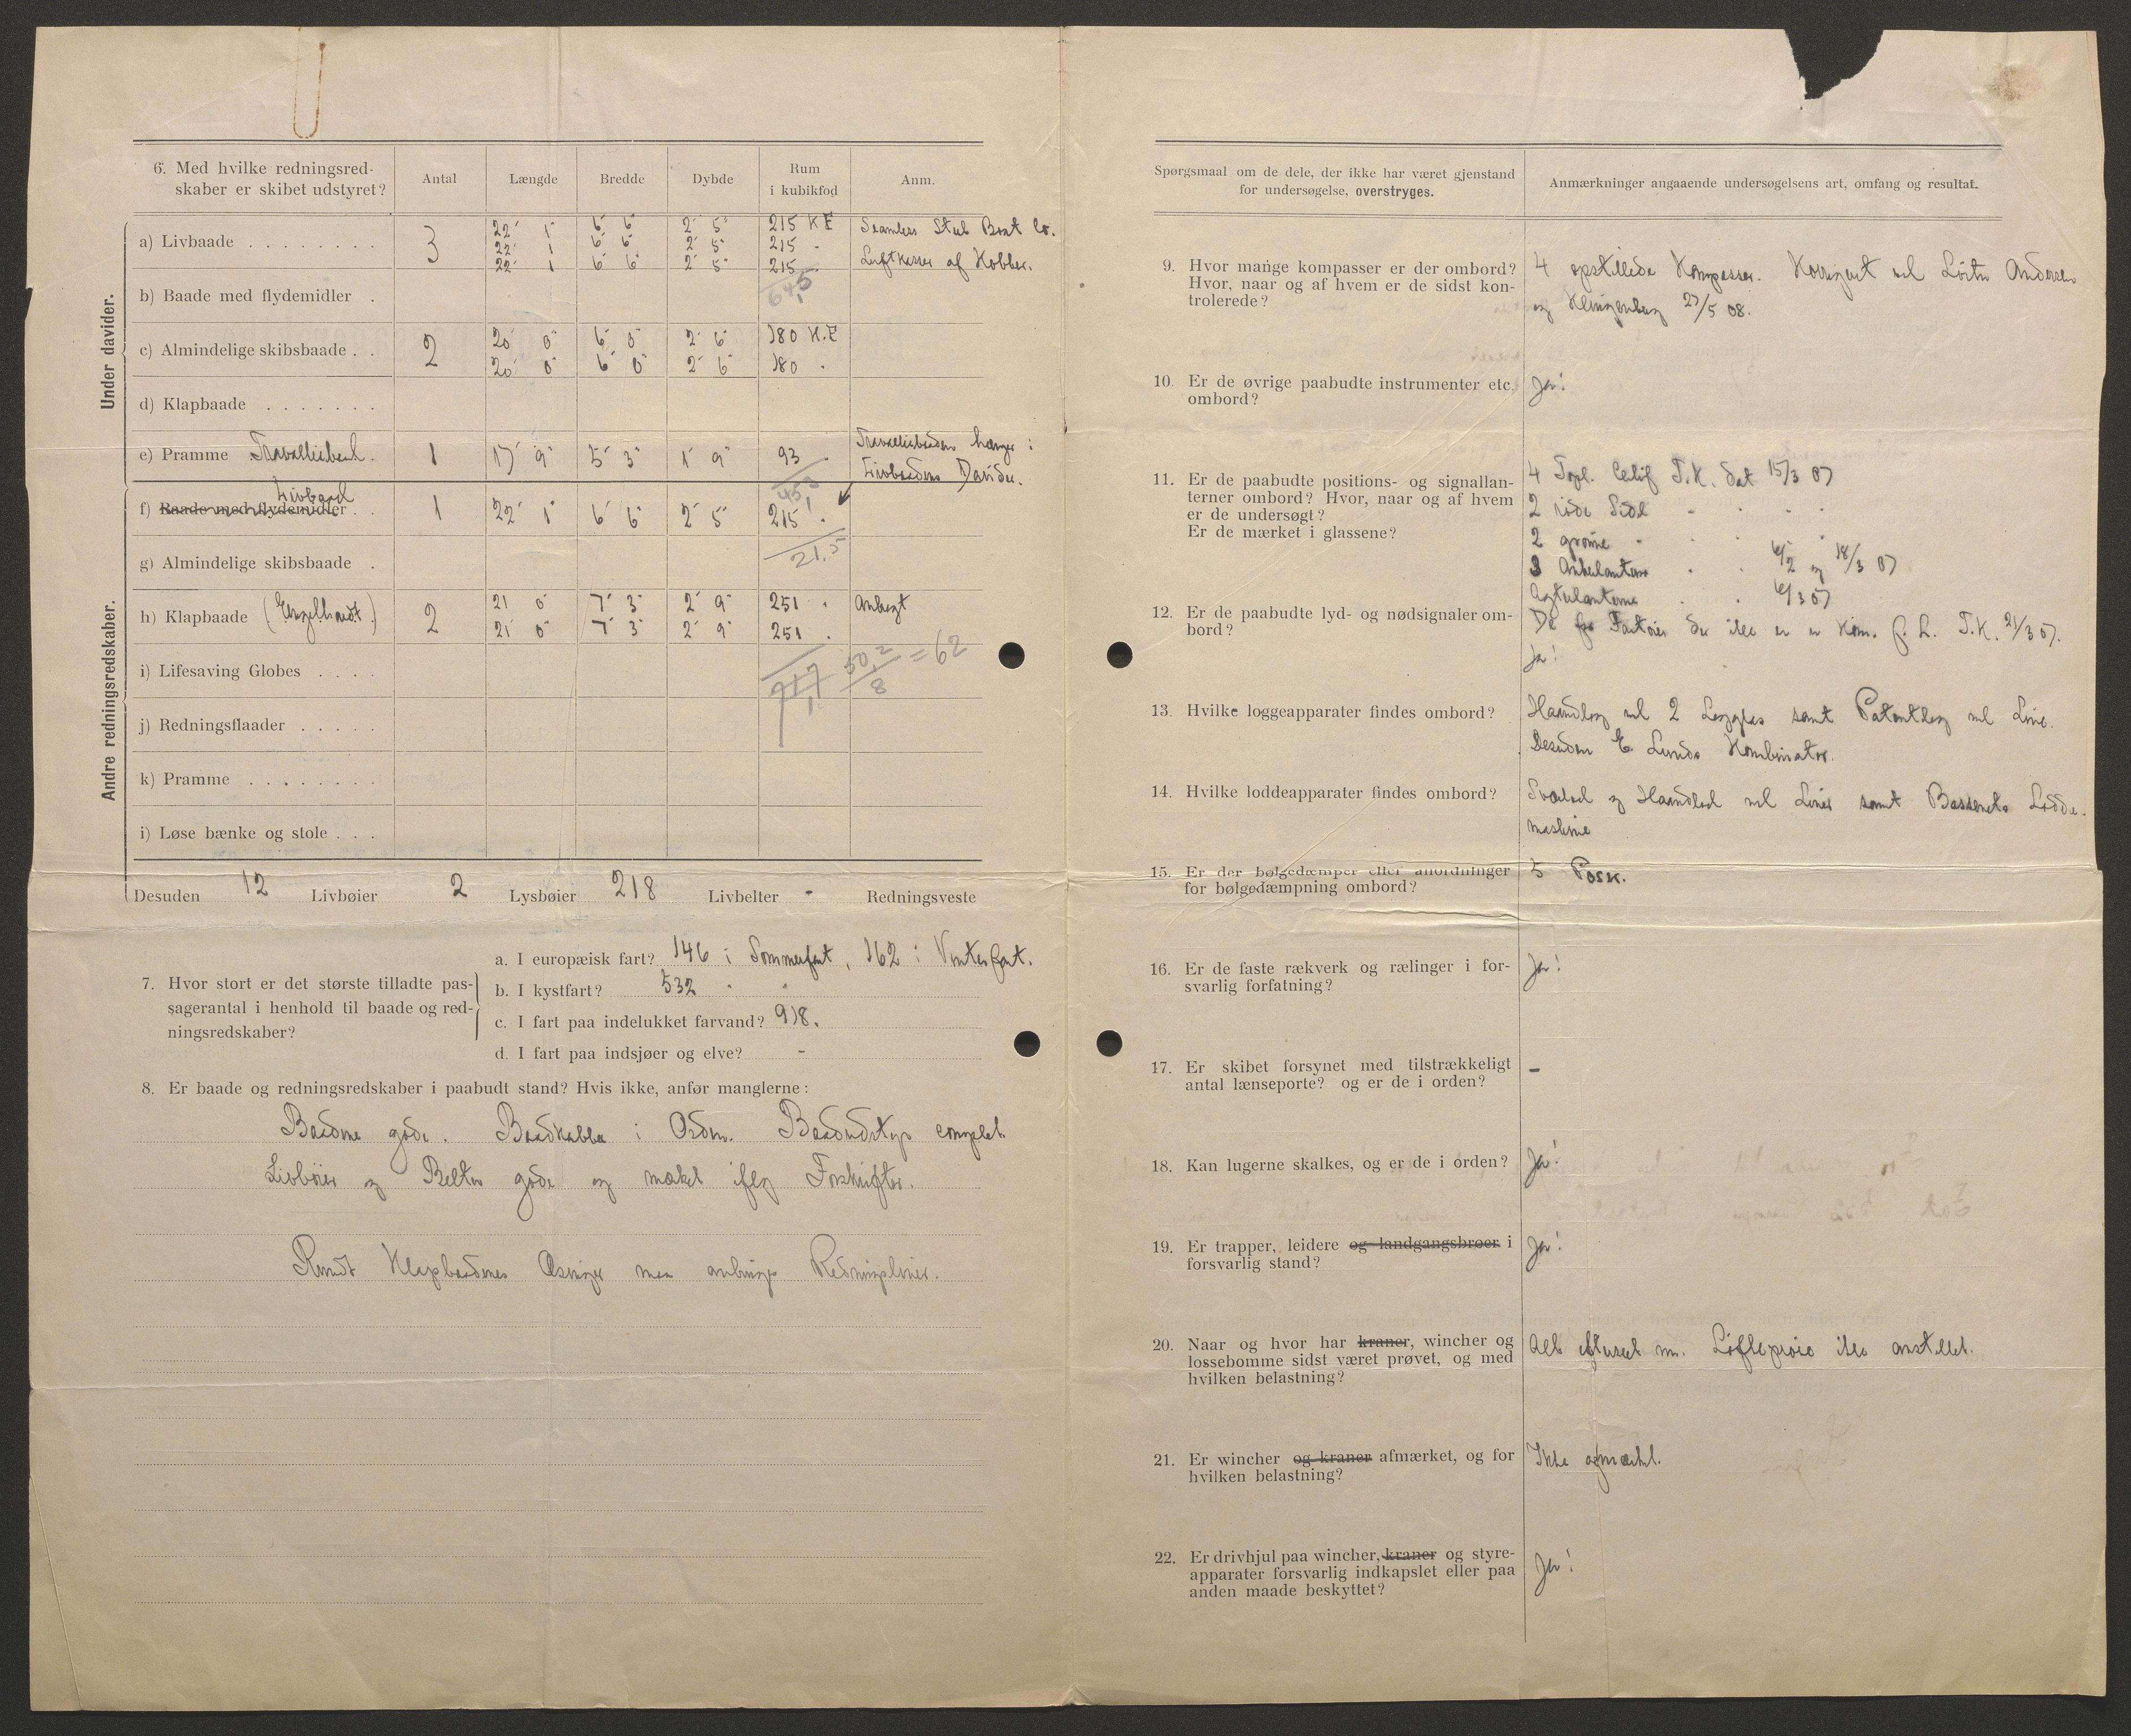 6. Med hvilke redningsred-
skaber er skibet udstyret?
Antal
Længde
Bredde
Dybde
Rum
i kubikfod
Anm.
Under davider.
a) Livbaade . . . . . . . .
3
22' 1" 6' 6" 2' 5" 215 K E
22' 1 6' 6" 2' 5" 215 -
22' 1 6' 6" 2' 5" 215 -
Seamless Steel Boat Co.
Luftkasser af Kobber.
64,5
b) Baade med flydemidler .
c) Almindelige skibsbaade . .
2
20' 0" 6' 0" 2' 6" 180 K.E
20' 0" 6' 0" 2' 6" 180 .
d) Klapbaade . . . . . . .
e) Pramme Travalliebaad.
1 17' 9" 5' 3" 1' 9" 93
Travalliebaaden hænger i
Livbaadens Davider.
45,3
Andre redningsredskaber.
Livbaad
f) Baade med flydemidler . .
1 22' 1" 6' 6" 2' 5" 215 .
21,5
g) Almindelige skibsbaade .
h) Klapbaade (Engelhardt.)
2
21 0" 7' 3" 2' 9" 251 .
21' 0" 7' 3" 2' 9" 251 .
50,2 = 62
8
i) Lifesaving Globes . . . .
j) Redningsflaader . . . . .
k) Pramme . . . . . . . .
i) Løse bænke og stole . . .
Desuden 12 Livbøier 2 Lysbøier 218 Livbelter - Redningsveste
7. Hvor stort er det største tilladte pas-
sagerantal i henhold til baade og red-
ningsredskaber?
a. I europæisk fart? 146 i Sommerfart, 162 i Vinterfart.
b. I kystfart? 532 " "
c. I fart paa indelukket farvand? 918.
d. I fart paa indsjøer og elve? -
8. Er baade og redningsredskaber i paabudt stand? Hvis ikke, anfør manglerne:
Baadene gode. Baadkabber i Orden. Baadudstyr complet.
Livbøier og Belter gode og mærket iflg Forskrifter.
Rundt Klapbaadenes Æsinger maa anbringes Redningsliner.
Spørgsmaal om de dele, der ikke har været gjenstand
for undersøgelse, overstryges.
Anmærkninger angaaende undersøgelsens art, omfang og resultat.
9. Hvor mange kompasser er der ombord?
Hvor, naar og af hvem er de sidst kon-
trolerede?
4 opstillede Kompasser. Korrigert ved Løitn Andersen
og Klingenberg 27/5 08.
10. Er de øvrige paabudte instrumenter etc.
ombord?
Ja!
11. Er de paabudte positions- og signallan-
terner ombord? Hvor, naar og af hvem
er de undersøgt?
Er de mærket i glassene?
4 Topl. Certif T.K. dat 15/3 07
2 røde Sidel - . - .
2 grønne - . . .
3 Ankerlanterner . . 6/2 og 18/3 07
Agterlanterne . . 6/3 07
12. Er de paabudte lyd- og nødsignaler om-
bord?
T.K. 21/3 07.
Ja!
13. Hvilke loggeapparater findes ombord?
Haandlog ved 2 Logglas samt Patentlog ved Line.
Desuden E. Lunds Kombinator.
14. Hvilke loddeapparater findes ombord?
Sværlod og Haandlod ved Liner samt Bassenets Lodde-
maskine
15. Er der bølgedæmper eller anordninger
for bølgedæmpning ombord?
5 Posr.
16. Er de faste rækverk og rælinger i for-
svarlig forfatning?
Ja!
17. Er skibet forsynet med tilstrækkeligt
antal lænseporte? og er de i orden?
-
18. Kan lugerne skalkes, og er de i orden?
Ja!
19. Er trapper, leidere og landgangsbroer i
forsvarlig stand?
Ja!
20. Naar og hvor har kraner, wincher og
lossebomme sidst været prøvet, og med
hvilken belastning?
Alt efterseet nu. Løfteprøve ikke anstillet.
21. Er wincher og kraner afmærket, og for
hvilken belastning?
Ikke afmærket.
22. Er drivhjul paa wincher, kraner og styre-
apparater forsvarlig indkapslet eller paa
anden maade beskyttet?
Ja!